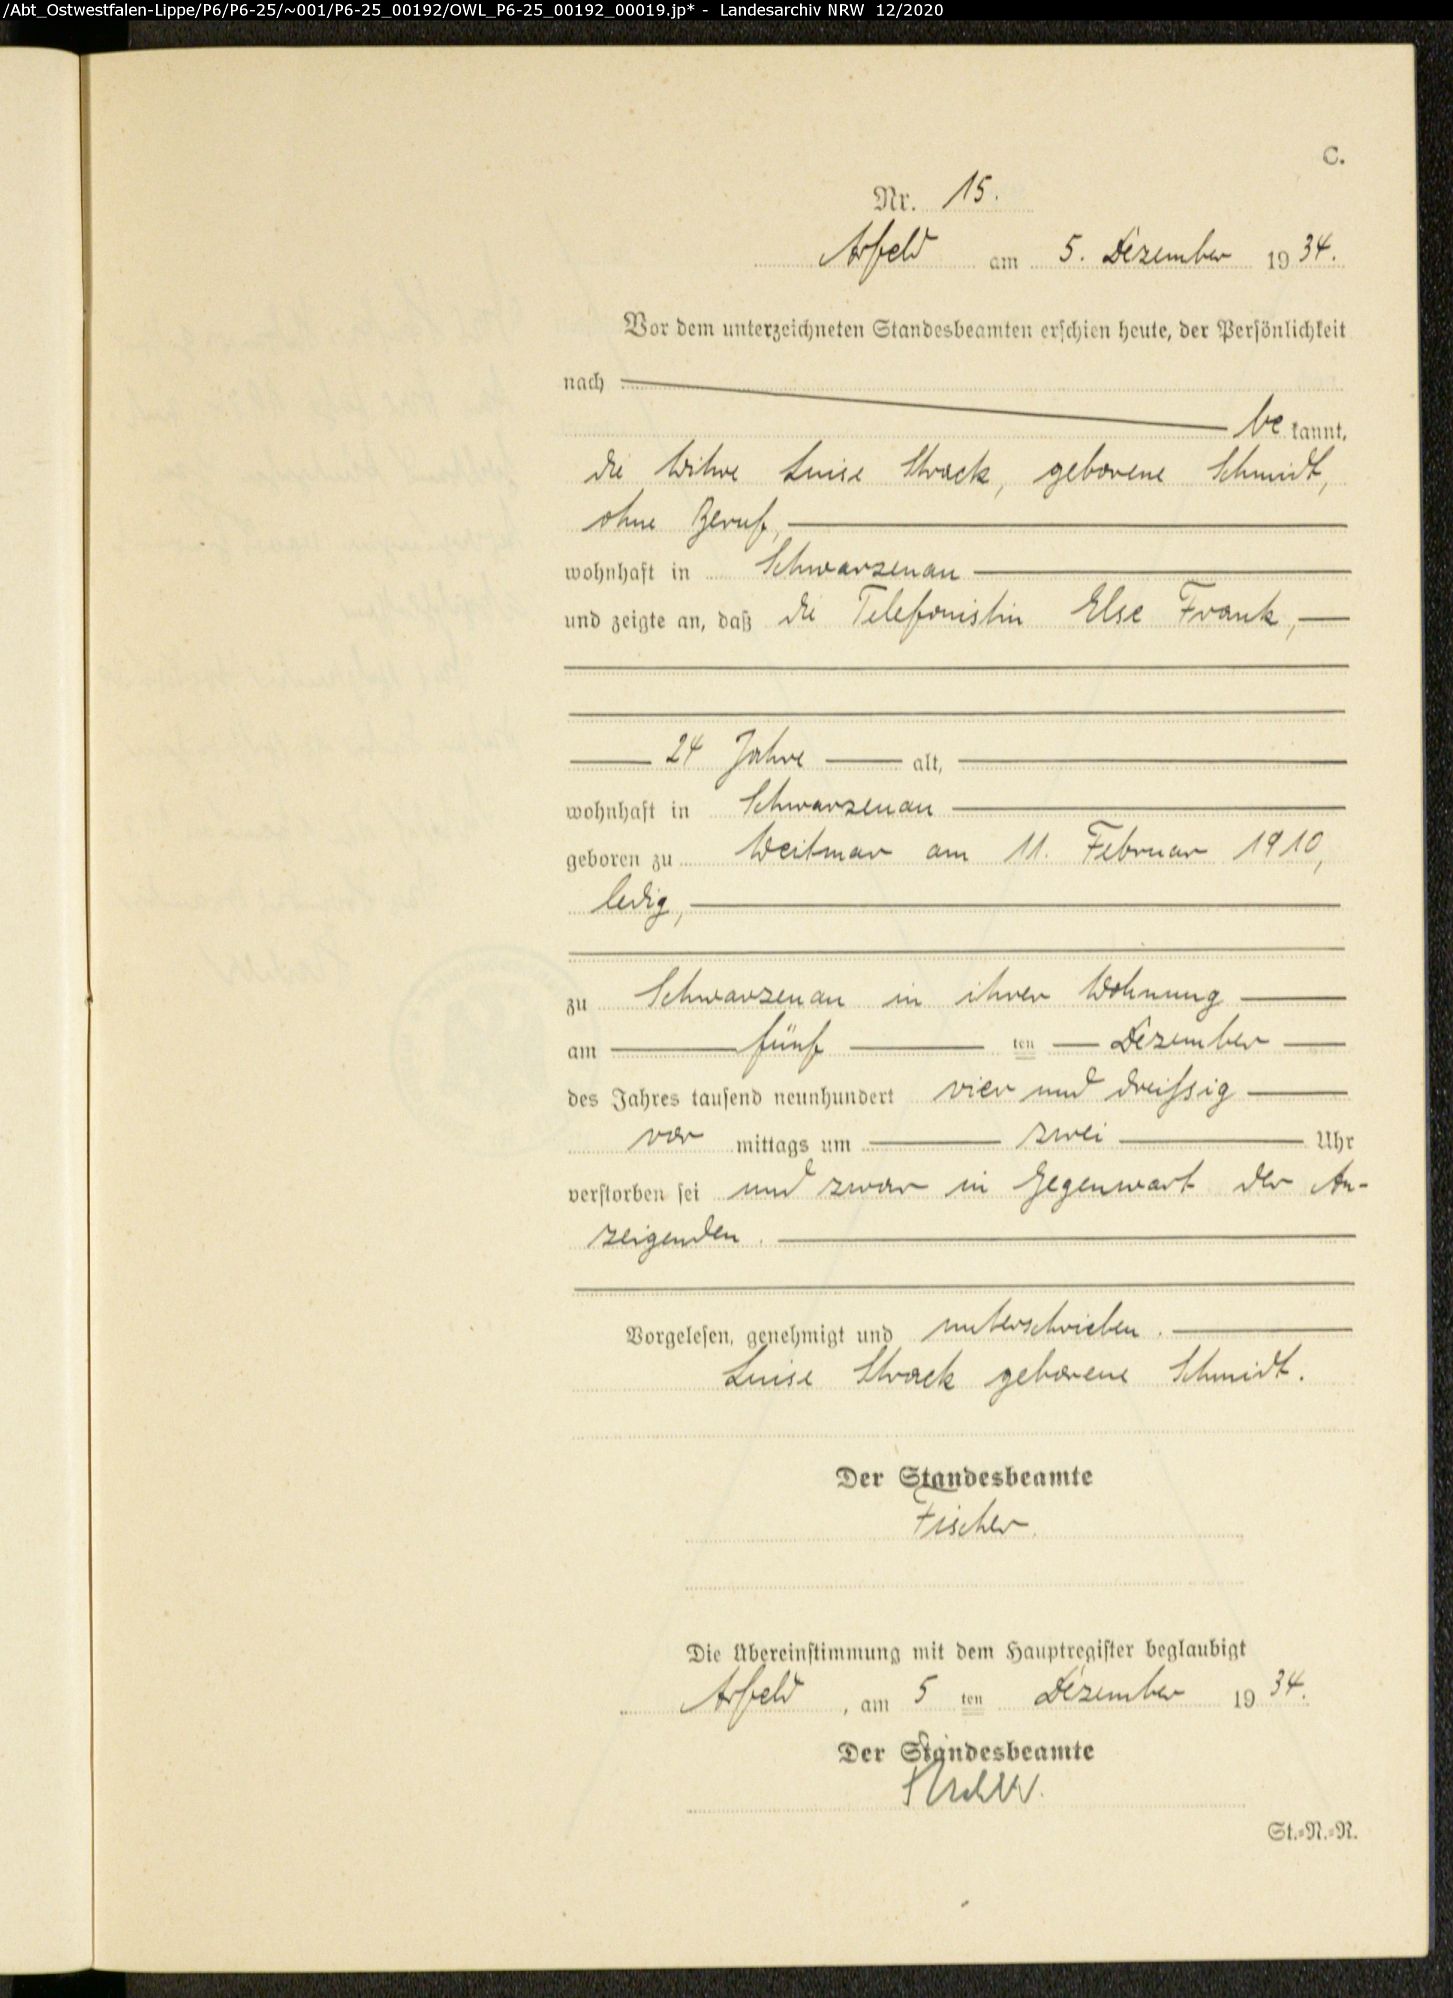 /Abt_Ostwestfalen-Lippe/P6/P6-25/~001/P6-25_00192/OWL_P6-25_00192_00019.jp* - Landesarchiv NRW 12/2020
C.
Nr. 15.
Arfeld am 5. Dezember 1934.
Vor dem unterzeichneten Standesbeamten erschien heute, der Persönlichkeit
nach
be kannt,
die Witwe Luise Strack, geborene Schmidt,
ohne Beruf,
wohnhaft in Schwarzenau
und zeigte an, daß die Telefonistin Else Frank,
24 Jahre alt,
wohnhaft in Schwarzenau
geboren zu Weitmar am 11. Februar 1910,
ledig,
zu Schwarzenau in ihrer Wohnung
am fünf ten Dezember
des Jahres tausend neunhundert vier und dreißig
vor mittags um zwei Uhr
verstorben sei und zwar in Gegenwart der An-
zeigenden.
Vorgelesen, genehmigt und unterschrieben.
Luise Strack geborene Schmidt.
Der Standesbeamte
Fischer.
Die Übereinstimmung mit dem Hauptregister beglaubigt
Arfeld, am 5 ten Dezember 1934.
Der Standesbeamte
St.=N.=N.